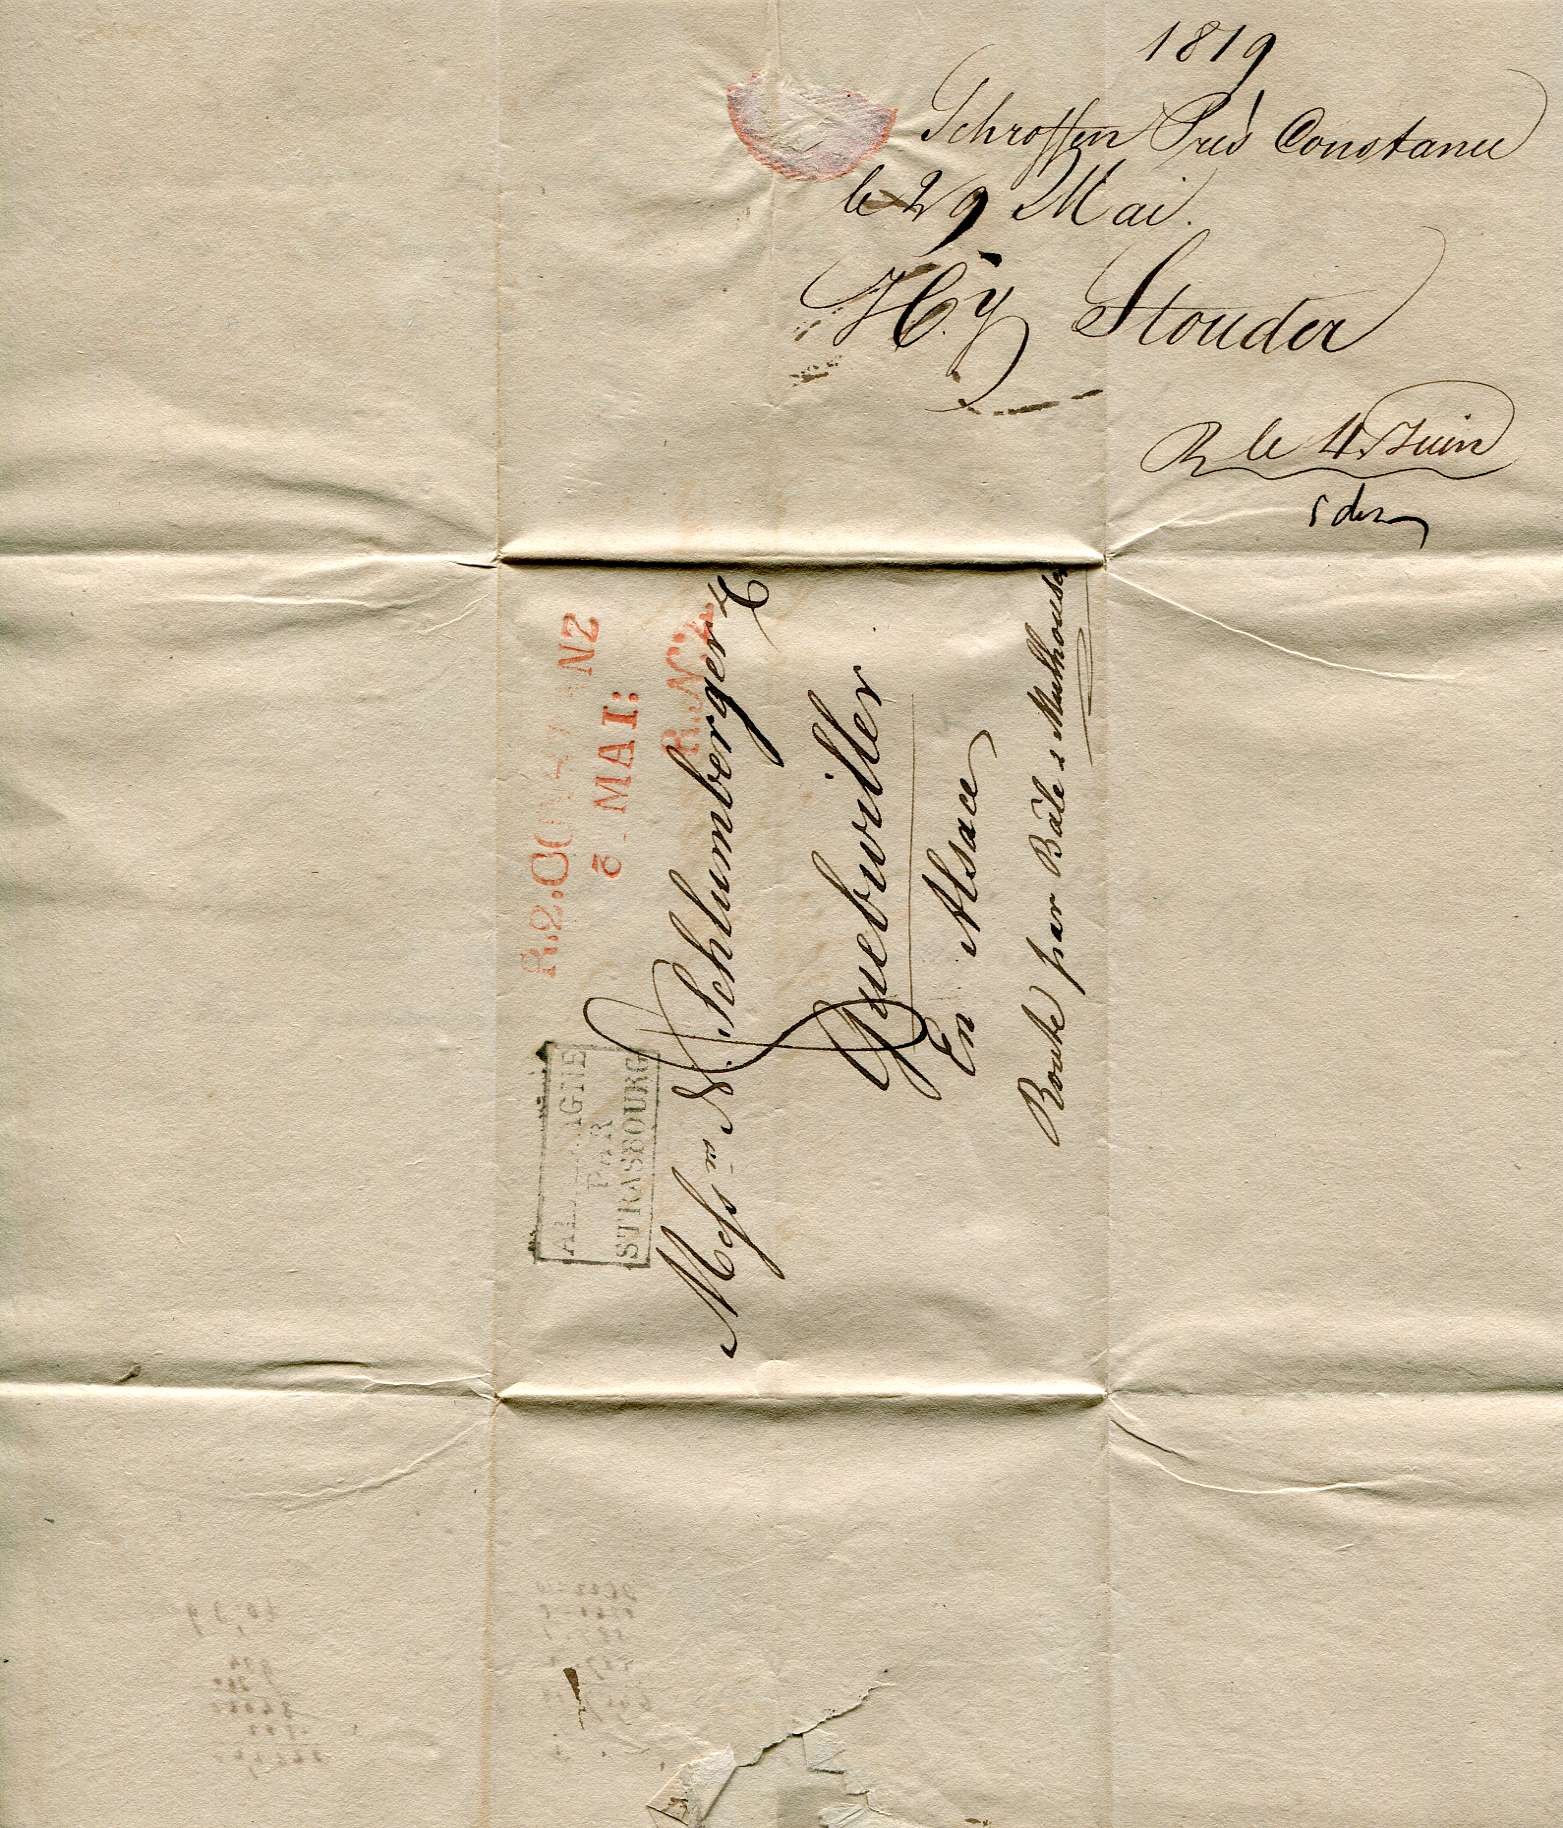 1819
Schroffen Près Constance
le 29 Mai.
Hy Stouder
R le 4 Juin
5 do
R.2.CONSTANZ
MAI:
R.N.
ALLEMAGNE
PAR
STRASBOURG
Messrs N. Schlumberger &
Guebwiller
En Alsace
Route par Bâle & Mulhouse